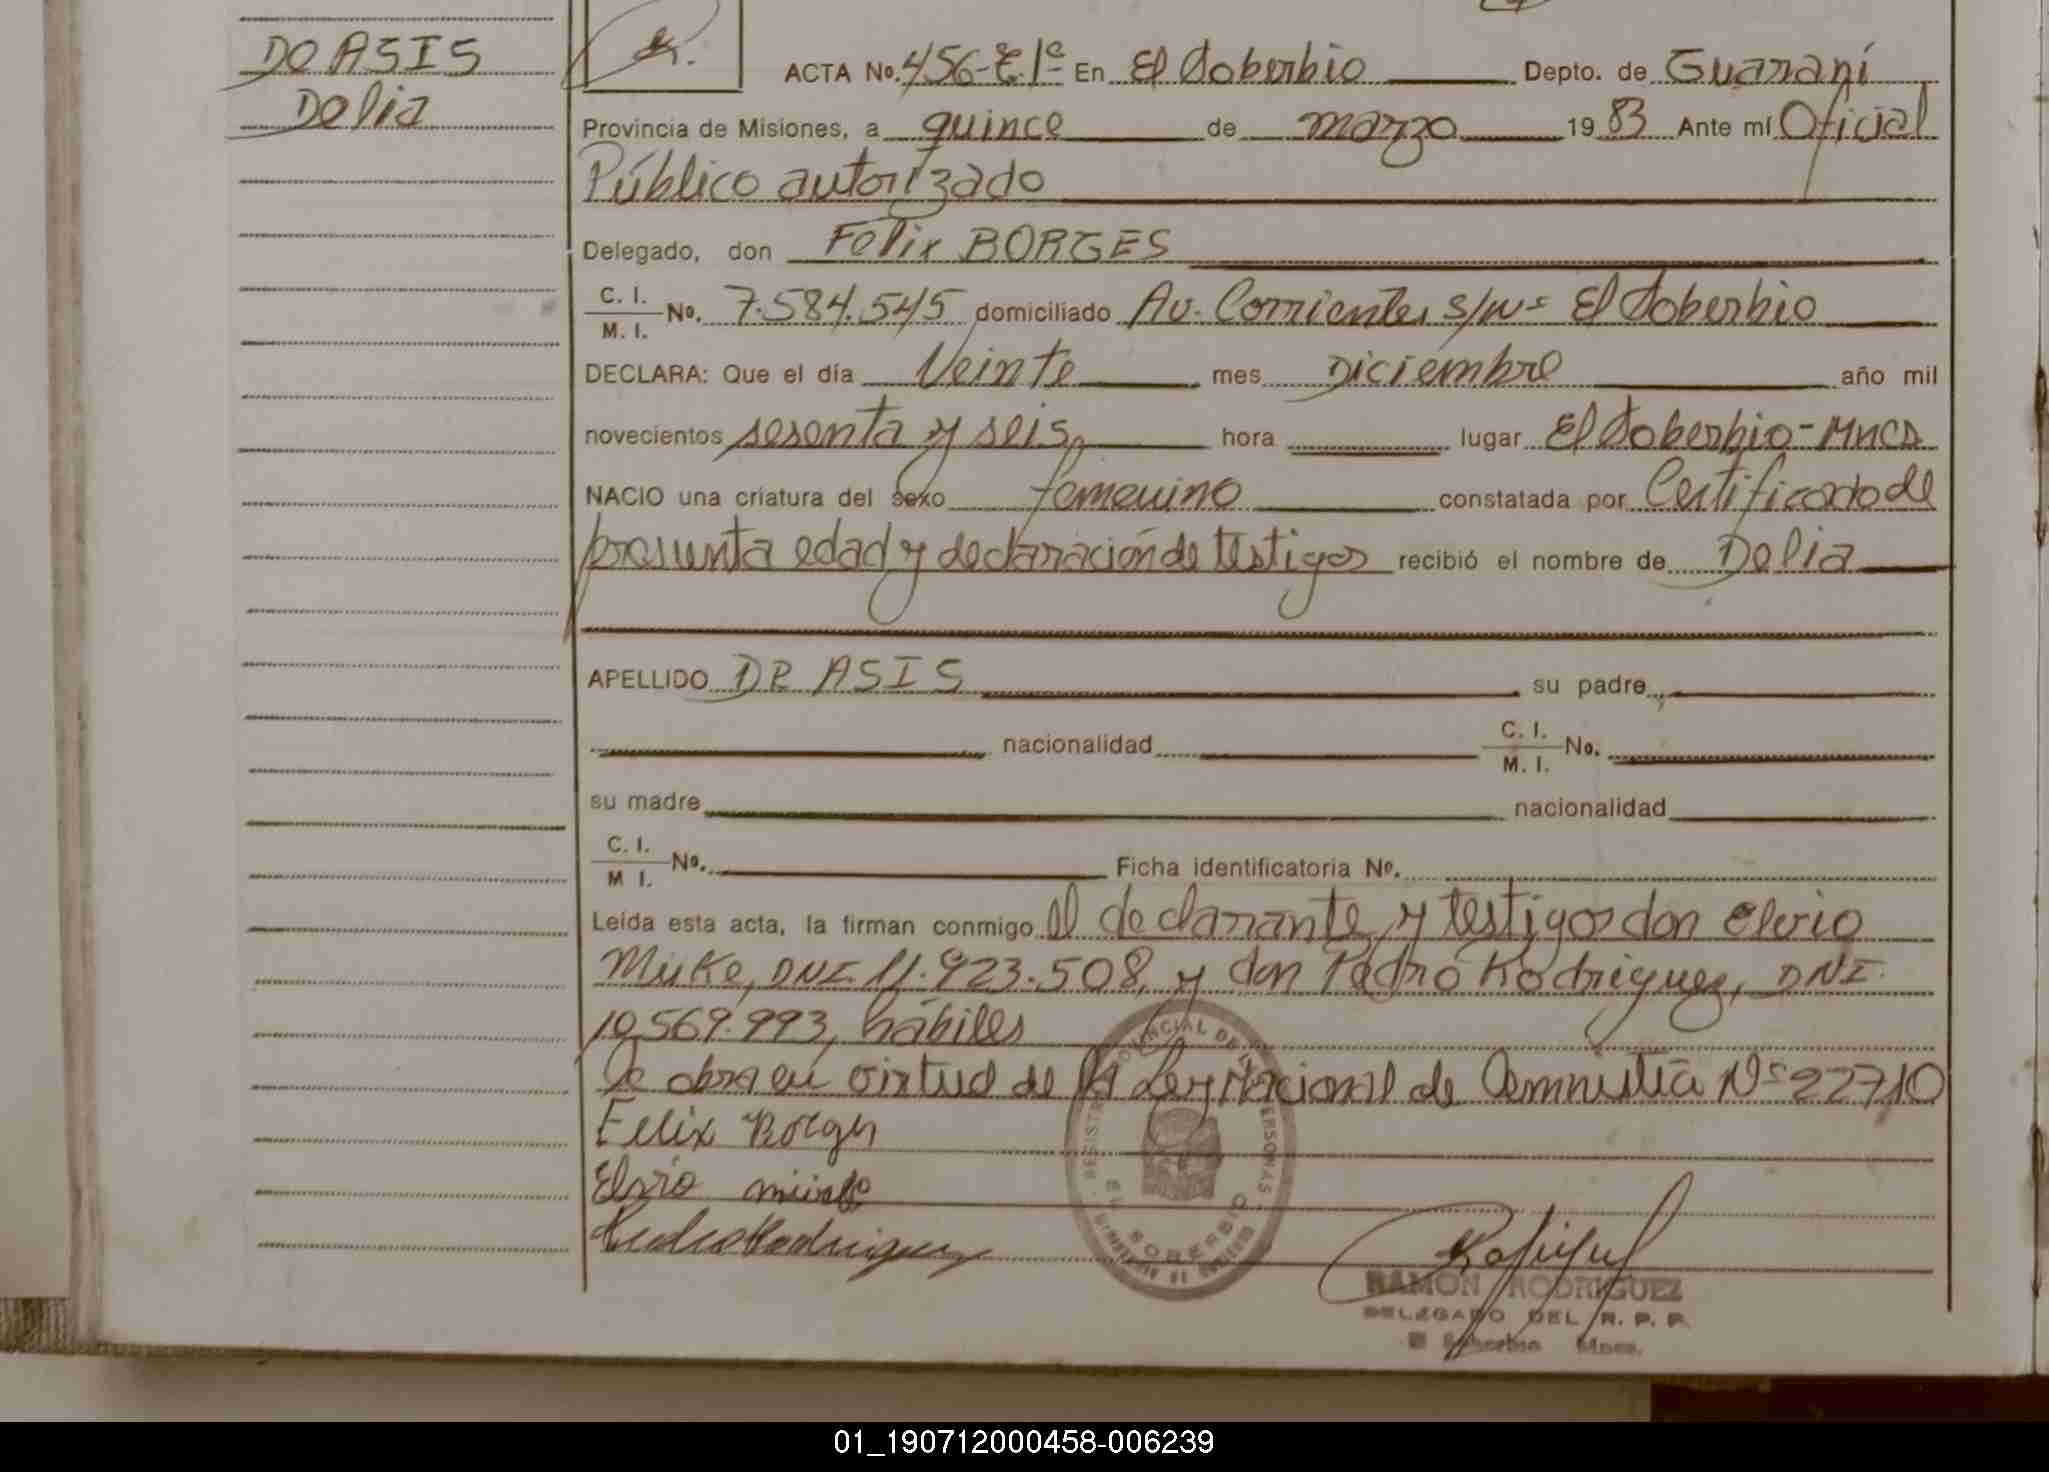 DE ASIS
Delia
ACTA No. 456-T.1º En El Soberbio Depto. de Guaraní
Provincia de Misiones, a quince de marzo 1983 Ante mí Oficial
Público autorizado
Delegado, don Felix BORGES
C. I.
M. I. No. 7.584.545 domiciliado Av. Corrientes s/nº El Soberbio
DECLARA: Que el día Veinte mes Diciembre año mil
novecientos sesenta y seis, hora lugar El Soberbio-Mnes
NACIO una criatura del sexo femenino constatada por Certificado de
presunta edad y declaración de testigos recibió el nombre de Delia
APELLIDO DE ASIS su padre
nacionalidad C. I.
M. I. No.
su madre nacionalidad
C. I.
M I. No. Ficha identificatoria No.
Leída esta acta, la firman conmigo el declarante, y testigos don Elvio
Mielke, DNI. 11.923.508, y don Pedro Rodriguez, DNI.
10.569.993, hábiles
Se obra en virtud de la Ley Nacional de Amnistía Nº 22710
Felix Borges
Elvio
Pedro Rodriguez
REGISTRO PROVINCIAL DE LAS PERSONAS
EL SOBERBIO
RAMON RODRIGUEZ
DELEGADO DEL R. P. P.
El Soberbio Mnes.
01_190712000458-006239